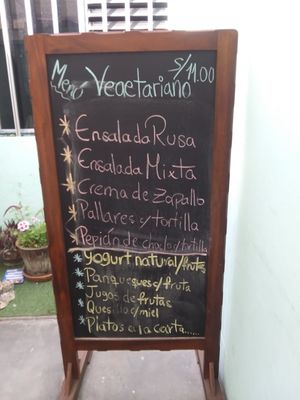 Menú Vegetariano S/11.00
* Ensalada Rusa
* Ensalada Mixta
* Crema de Zapallo
* Pallares c/tortilla
* Pepián de choclo c/tortilla
* Yogurt natural/frutas
* Panqueques c/fruta
* Jugos de frutas
* Quesillo c/miel
* Platos a la carta......